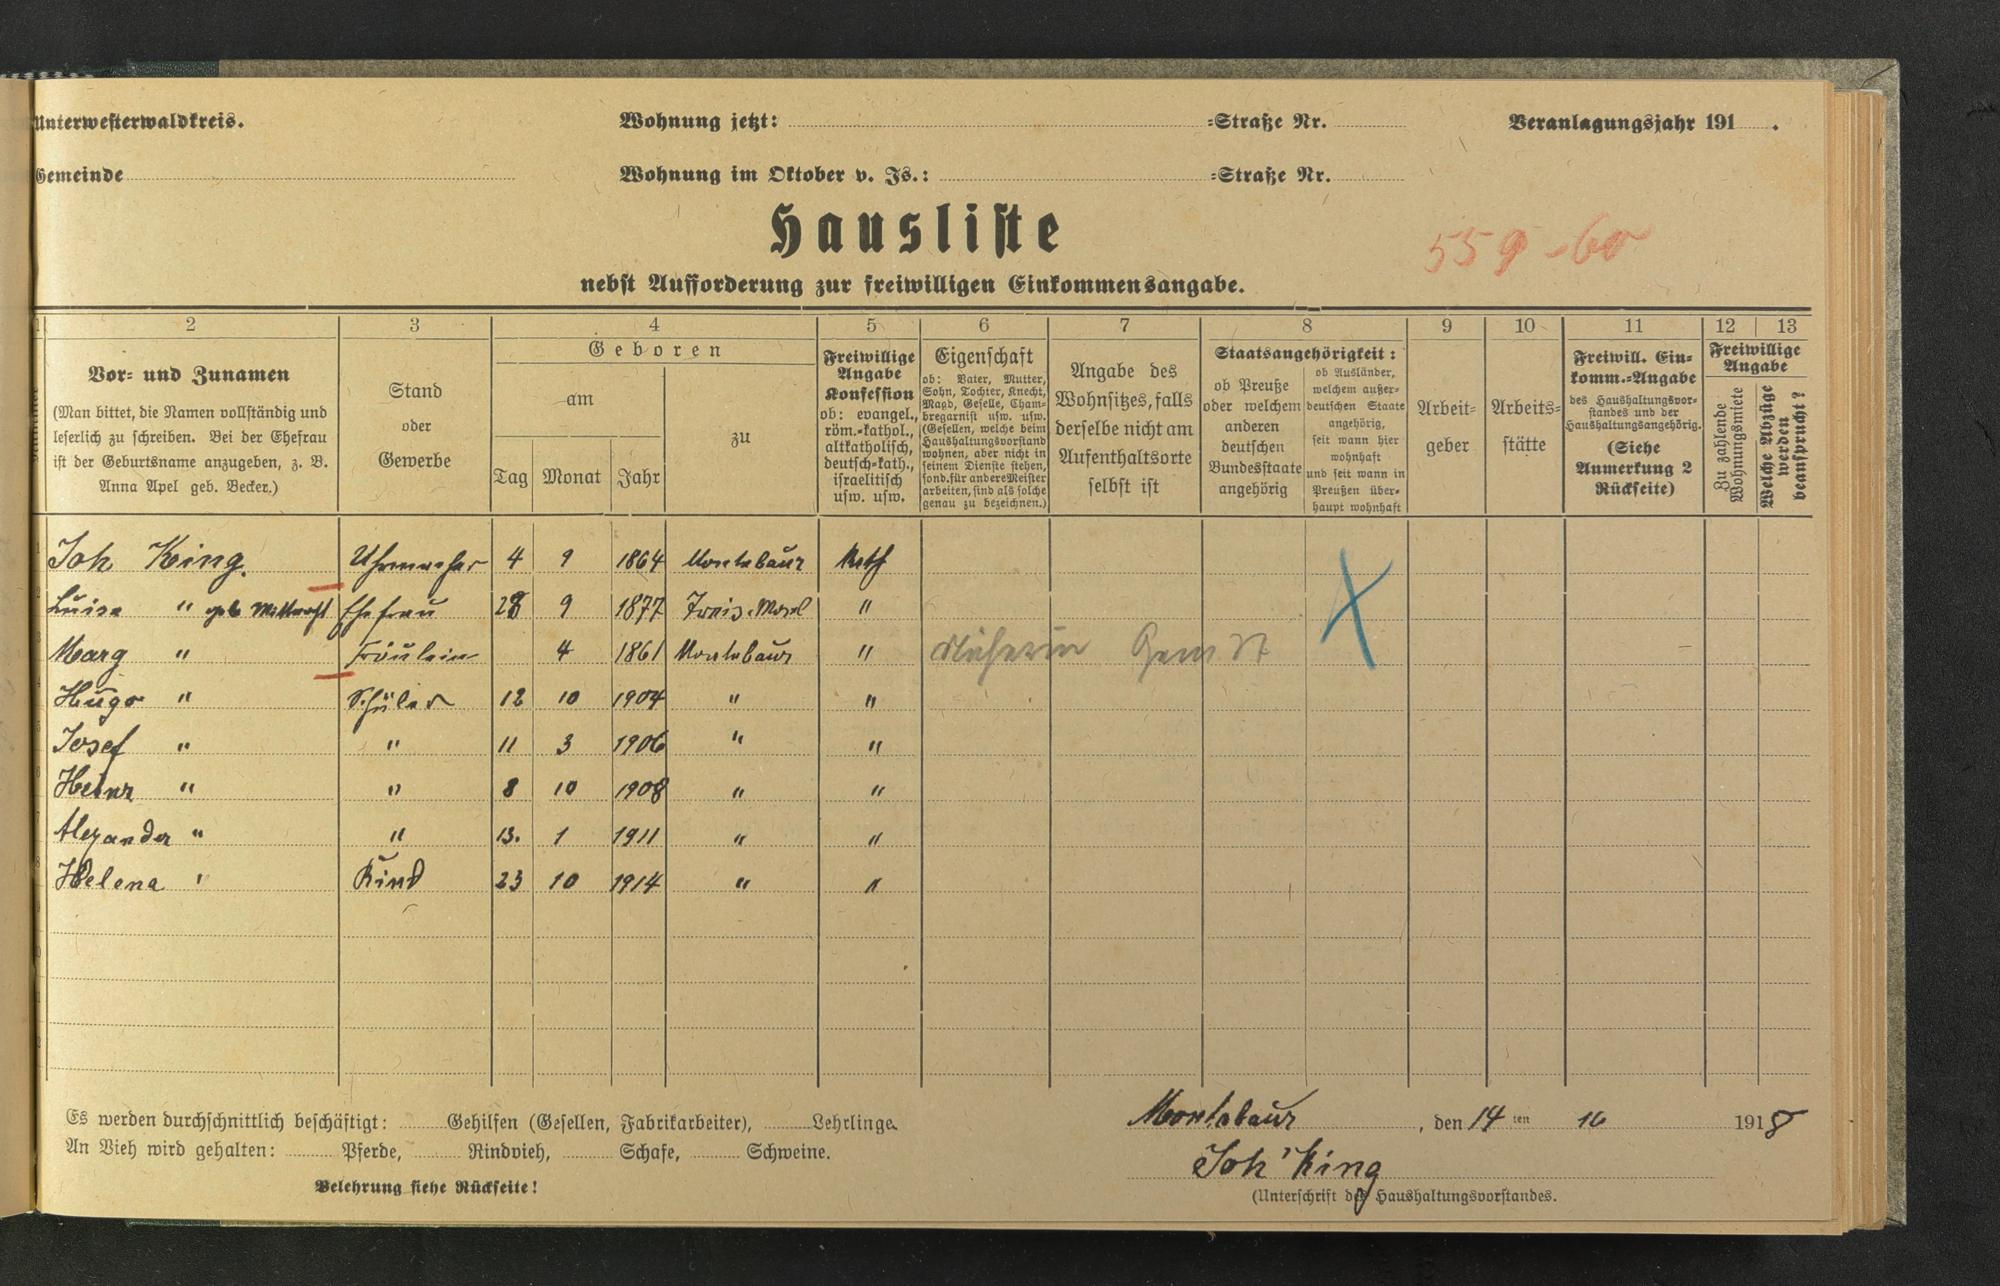 Unterwesterwaldkreis. Wohnung jetzt: -Straße Nr. Veranlagungsjahr 191 .
Gemeinde Wohnung im Oktober v. Js.: -Straße Nr.
Hausliste
559-60
nebst Aufforderung zur freiwilligen Einkommensangabe.
1 2 3 4 5 6 7 8 9 10 11 12 13
Vor- und Zunamen
(Man bittet, die Namen vollständig und
leserlich zu schreiben. Bei der Ehefrau
ist der Geburtsname anzugeben, z. B.
Anna Apel geb. Becker.)
Stand
oder
Gewerbe
Geboren
am
Tag Monat Jahr
zu
Freiwillige
Angabe
Konfession
ob: evangel.,
röm.-kathol.,
altkatholisch,
deutsch-kath.,
israelitisch
usw. usw.
Eigenschaft
ob: Vater, Mutter,
Sohn, Tochter, Knecht,
Magd, Geselle, Cham-
bregarnist usw. usw.
(Gesellen, welche beim
Haushaltungsvorstand
wohnen, aber nicht in
seinem Dienste stehen,
sond. für andere Meister
arbeiten, sind als solche
genau zu bezeichnen.)
Angabe des
Wohnsitzes, falls
derselbe nicht am
Aufenthaltsorte
selbst ist
Staatsangehörigkeit:
ob Preuße
oder welchem
anderen
deutschen
Bundesstaate
angehörig
ob Ausländer,
welchem außer-
deutschen Staate
angehörig,
seit wann hier
wohnhaft
und seit wann in
Preußen über-
haupt wohnhaft
Arbeit-
geber
Arbeits-
stätte
Freiwill. Ein-
komm.-Angabe
des Haushaltungsvor-
standes und der
Haushaltungsangehörig.
(Siehe
Anmerkung 2
Rückseite)
Freiwillige
Angabe
Zu zahlende
Wohnungsmiete
Welche Abzüge
werden
beansprucht?
1 Joh King. Uhrmacher 4 9 1864 Montabaur Kath
2 Luise " geb Ehefrau 28 9 1877 Treis-Mosel "
3 Marg " Fräulein 4 1861 Montabaur " Näherin
4 Hugo " Schüler 12 10 1904 " "
5 Josef " " 11 3 1906 " "
6 Heinz " " 8 10 1908 " "
7 Alexander " " 13. 1 1911 " "
8 Helena " Kind 23 10 1914 " "
Es werden durchschnittlich beschäftigt: Gehilfen (Gesellen, Fabrikarbeiter), Lehrlinge.
An Vieh wird gehalten: Pferde, Rindvieh, Schafe, Schweine.
Belehrung siehe Rückseite!
Montabaur, den 14 ten 10 1918
Joh King
(Unterschrift des Haushaltungsvorstandes.